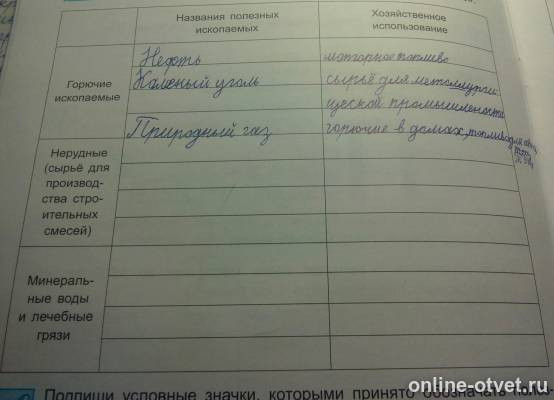 Названия полезных
ископаемых
Хозяйственное
использование
Горючие
ископаемые
Нефть
моторное топливо
Каменый уголь
сырьё для металлурги
ческой промышлености
Природный газ
горючие в домах, топливо
Нерудные
(сырьё для
производ-
ства стро-
ительных
смесей)
Минераль-
ные воды
и лечебные
грязи
Подпиши условные значки, которыми принято обозначать
online-otvet.ru